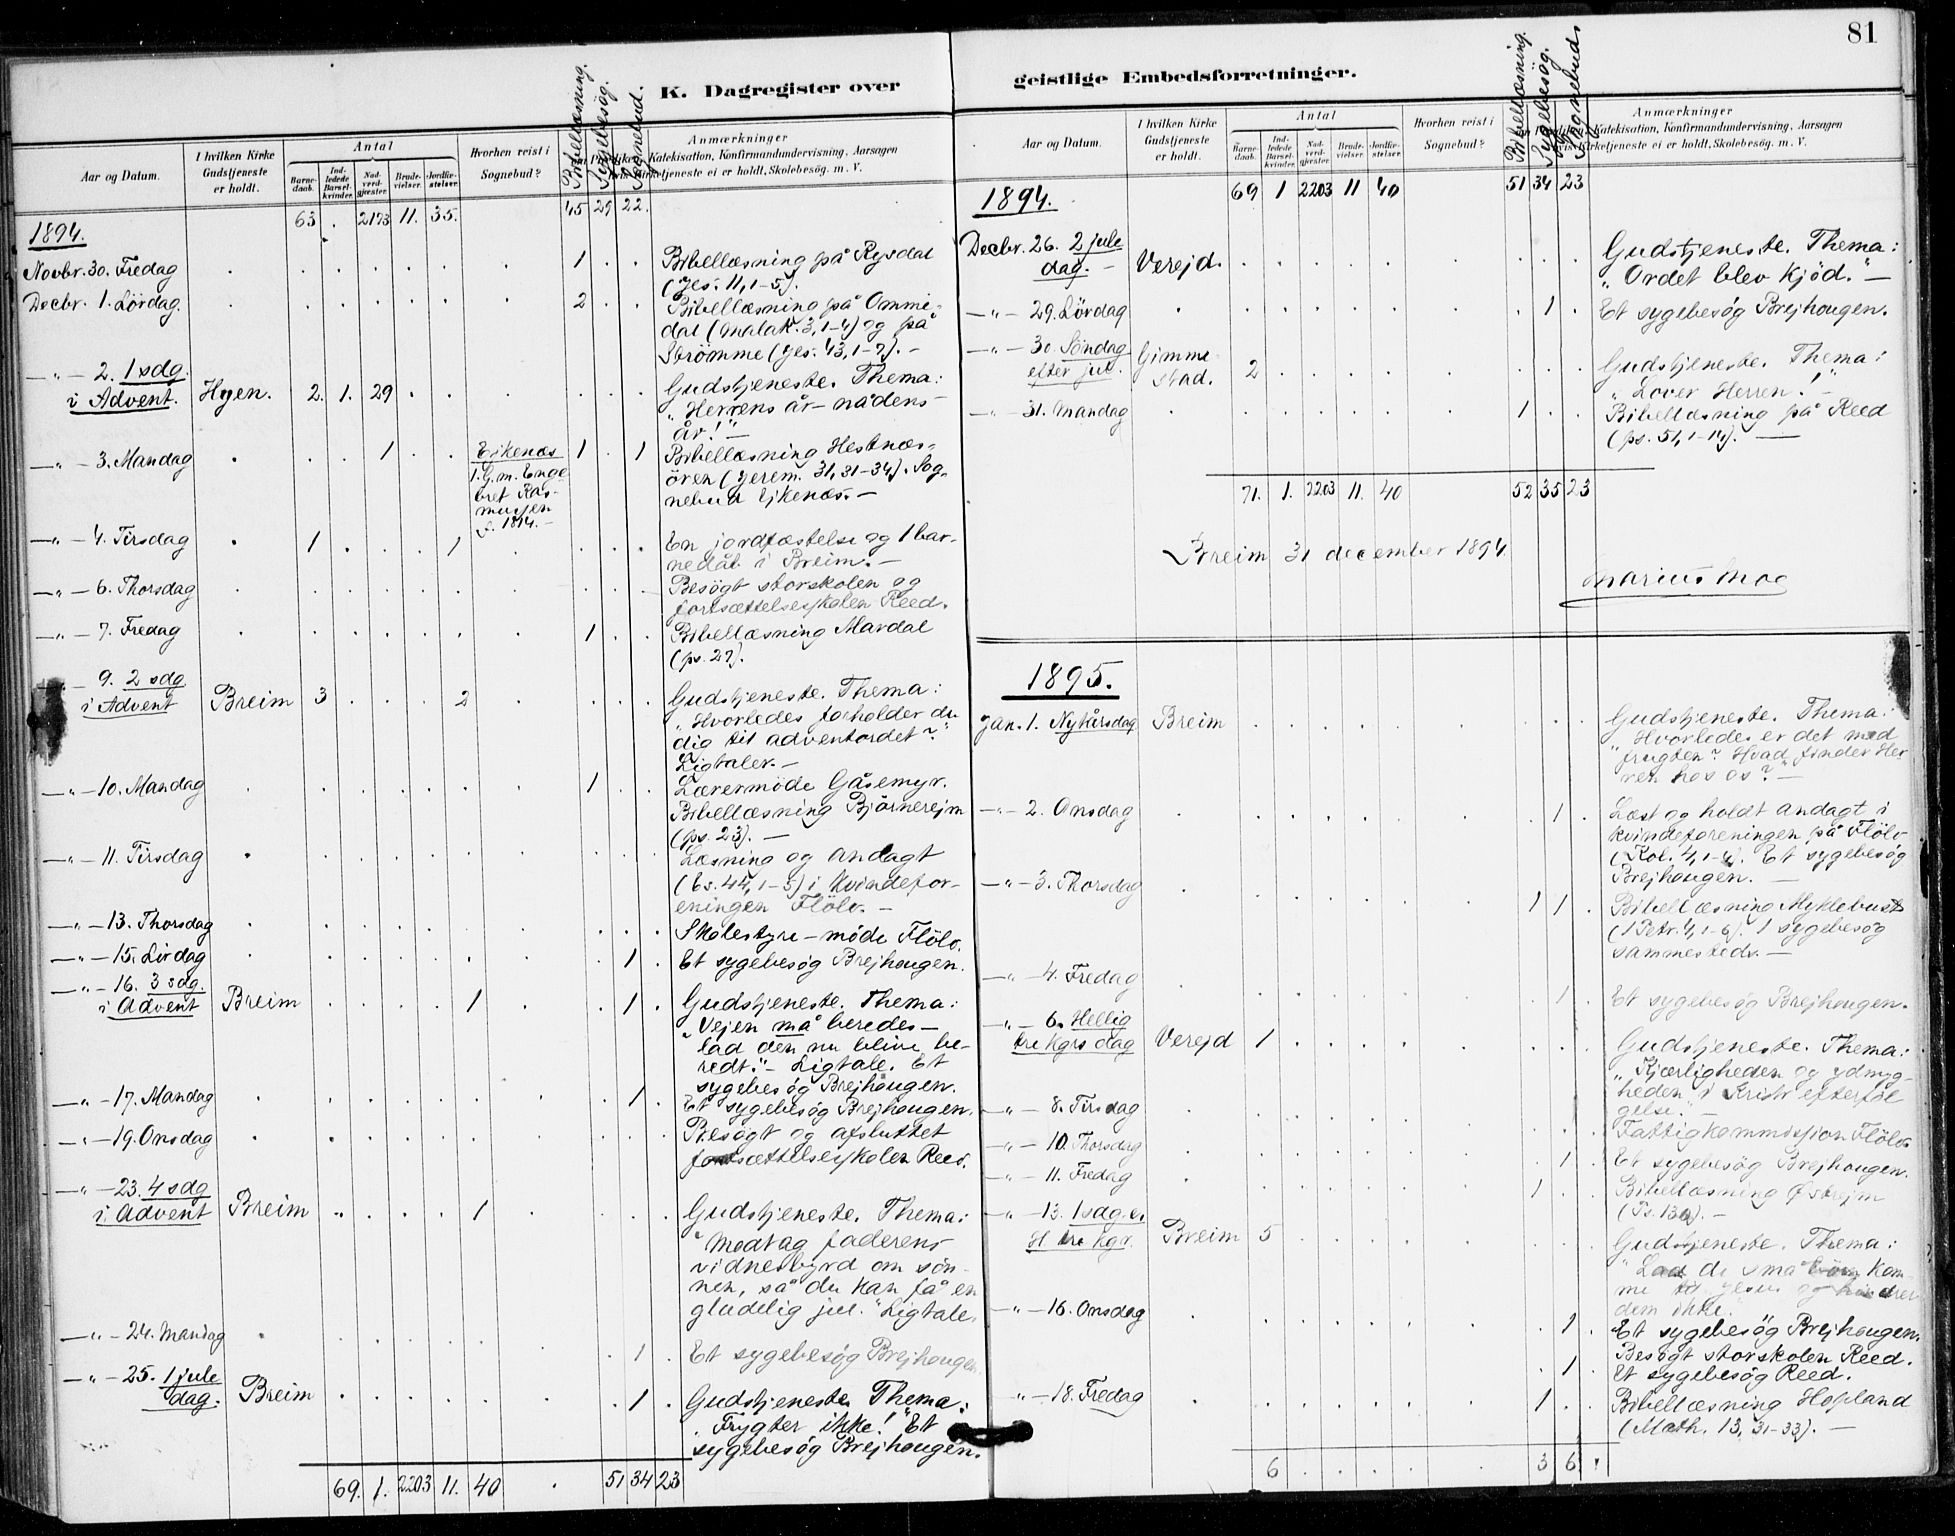 81
K. Dagregister over
geistlige Embedsforretninger.
Aar og Datum.
I hvilken Kirke Gudstjeneste er holdt.
Antal
Barne-daab.
Ind-ledede Barsel-kvinder.
Nad-verd-gjester
Brude-vielser.
Jordfæ-stelser
Hvorhen reist i Sognebud?
Bibellæsning.
Sygebesøg.
Sognebud.
Anmærkninger
Katekisation, Konfirmandundervisning, Aarsagen
kirketjeneste ei er holdt, Skolebesøg. m. V.
1894. 63 . 2173 11. 35. 45 29 22.
Novbr. 30. Fredag 1 Bibellæsning på Rysdal
(Jes. 11, 1-5).
Decbr. 1. Lördag. 2 Bibellæsning på Ommedal
(Malak. 3, 1-4) og på
Strömme (Jes. 43, 1-7). -
-"- 2. 1 sdg. i Advent. Hyen. 2. 1. 29 Gudstjeneste. Thema:
"Herrens år - nådens
år!" -
-"- 3. Mandag 1 Ejkenæs 1 . 1 Bibellæsning Hestnæs-
1. G. m. Enge-
bret Ras-
mussen
f. 1814. -
ören (Jerem. 31, 31-34). Sog-
nebud Ejkenæs. -
-"- 4. Tirsdag 1 1 En jordfæstelse og 1 bar-
nedåb i Breim. -
-"- 6. Thorsdag Besögt storskolen og
fortsættelsesskolen Reed.
-"- 7. Fredag 1 Bibellæsning Mardal
(ps. 27).
- 9. 2 sdg i Advent Breim 3 2 Gudstjeneste. Thema:
"Hvorledes forholder du
dig til adventordet?"
Ligtaler. -
-"- 10. Mandag 1 Lærermöde Gåsemyr.
Bibellæsning Björnerejm
(ps. 23). -
-"- 11. Tirsdag Læsning og andagt
(Es. 44, 1-5) i kvindefor-
eningen Flölo. -
-"- 13. Thorsdag Skolestyre-möde Flölo.
-"- 15. Lördag 1 Et sygebesög Brejhougen.
-"- 16. 3 sdg. i Advent Breim 1 1 Gudstjeneste. Thema:
"Vejen må beredes -
lad den nu blive be-
redt." - Ligtale. Et
sygebesög Brejhougen.
-"- 17. Mandag 1 Et sygebesög Brejhougen.
-"- 19. Onsdag Besögt og afsluttet
fortsættelsesskolen Reed.
-"- 23. 4 sdg i Advent Breim 1 Gudstjeneste. Thema:
"Modtag faderens
vidnesbyrd om søn-
nen, så du kan få en
glædelig jul." Ligtale.
-"- 24. Mandag 1 Et sygebesög Brejhougen
-"- 25. 1 jule dag. Breim 1 Gudstjeneste. Thema:
"Frygter ikke!" Et
sygebesög Brejhougen.
69. 1. 2203 11. 40 51 34 23
Aar og Datum.
I hvilken Kirke Gudstjeneste er holdt.
Antal
Barne-daab.
Ind-ledede Barsel-kvinder.
Nad-verd-gjester
Brude-vielser.
Jordfæ-stelser
Hvorhen reist i Sognebud?
Bibellæsning.
Sygebesøg.
Sognebud.
Anmærkninger
Katekisation, Konfirmandundervisning, Aarsagen
kirketjeneste ei er holdt, Skolebesøg. m. V.
1894. 69 1 2203 11 40 51 34 23
Decbr. 26. 2 jule dag. - Verejd. Gudstjeneste. Thema:
"Ordet blev kjöd." -
-"- 29. Lördag 1 Et sygebesög Brejhougen.
-"- 30. Söndag efter jul. Gimmestad. 2 Gudstjeneste. Thema:
"Lover Herren!" -
-"- 31. Mandag 1 Bibellæsning på Reed
(ps. 51, 1-14). -
71. 1. 2203 11. 40 52 35 23
Breim 31 december 1894
Marius Moe
1895.
Jan. 1. Nytårsdag Breim Gudstjeneste. Thema:
"Hvorledes er det med
frugten? Hvad finder Her-
ren hos os?" -
-"- 2. Onsdag 1 Læst og holdt andagt i
kvindeforeningen på Flölo
(Kol. 4, 1-4). Et sygebesög
Brejhougen. -
-"- 3. Thorsdag 1 1 Bibellæsning Myklebust
(1 Petr. 4, 1-6). 1 sygebesög
sammesteds. -
-"- 4. Fredag 1 Et sygebesög Brejhougen.
-"- 6. Hellig tre kgrs dag Verejd 1 Gudstjeneste. Thema:
"Kjærligheden og ydmyg-
heden i Kristi efterföl-
gelse." -
-"- 8. Tirsdag Fattigkommission Flölo.
-"- 10. Thorsdag 1 Et sygebesög Brejhougen.
-"- 11. Fredag 1 Bibellæsning Östrejm
(Ps. 130). -
-"- 13. 1 sdg. e. H. tre kgr. Breim 5 Gudstjeneste. Thema:
"Lad de små börn kom-
me til Jesus og hindrer
dem ikke.
-"- 16. Onsdag 1 Et sygebesög Brejhougen.
Besögt storskolen Reed.
1 Et sygebesög Reed.
"- 18. Fredag 1 Bibellæsning Hopland
(Math. 13, 31-33). -
6 3 6